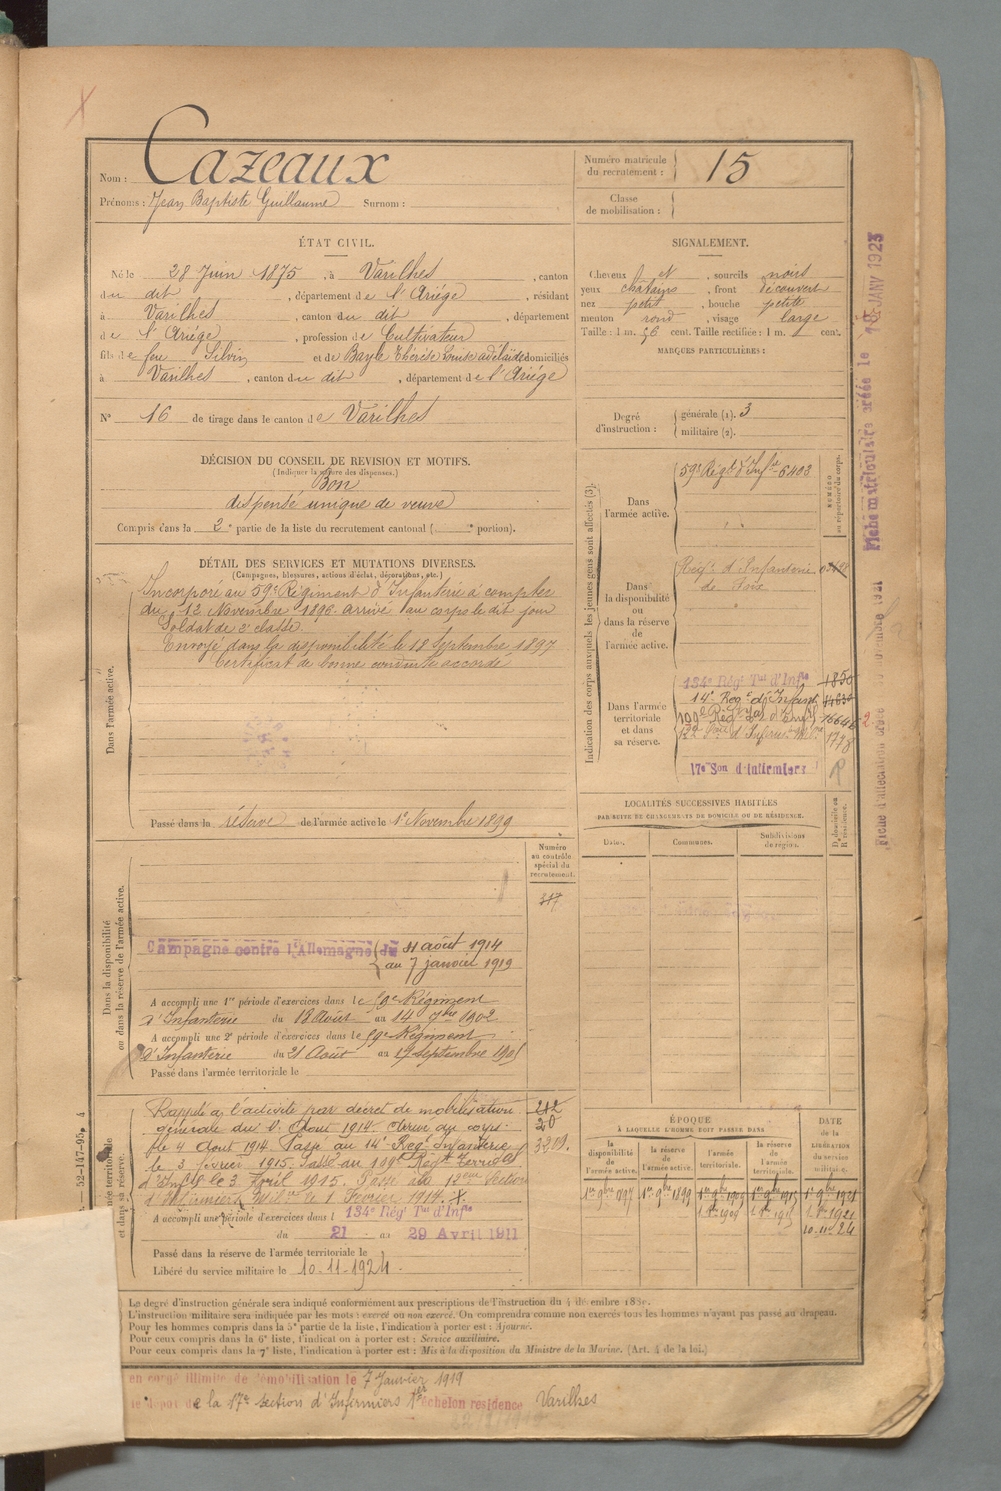 Nom : Cazeaux
Prénoms : Jean Baptiste Guillaume Surnom :
Numéro matricule du recrutement : 15
Classe de mobilisation :
ÉTAT CIVIL.
Né le 28 Juin 1875, à Varilhes, canton
du dit, département de l'Ariége, résidant
à Varilhes, canton du dit, département
de l'Ariége, profession de Cultivateur
fils de feu Silvin et de Bayle Thérèse Louise adélaïde domiciliés
à Varilhes, canton du dit, département de l'Ariége
N° 16 de tirage dans le canton de Varilhes
DÉCISION DU CONSEIL DE REVISION ET MOTIFS.
(Indiquer la nature des dispenses.)
Bon
dispensé unique de veuve
Compris dans la 2e partie de la liste du recrutement cantonal ( e portion).
SIGNALEMENT.
Cheveux et, sourcils noirs
yeux chatains, front découvert
nez petit, bouche petite
menton rond, visage large
Taille : 1 m. 56 cent. Taille rectifiée : 1 m. cent.
MARQUES PARTICULIÈRES :
Degré d'instruction : générale (1). 3
militaire (2).
DÉTAIL DES SERVICES ET MUTATIONS DIVERSES.
(Campagnes, blessures, actions d'éclat, décorations, etc.)
Dans l'armée active.
Incorporé au 59e Régiment d'Infanterie à compter
du 12 Novembre 1896 arrivé au corps le dit jour
Soldat de 2e classe.
Envoyé dans la disponibilité le 18 Septembre 1897
Certificat de bonne conduite accordé
Passé dans la réserve de l'armée active le 1er Novembre 1899
Dans la disponibilité ou dans la réserve de l'armée active.
Numéro au contrôle spécial du recrutement.
317
Campagne contre l'Allemagne du 11 août 1914
au 7 janvier 1919
A accompli une 1re période d'exercices dans le 59e Régiment
d'Infanterie du 18 Août au 14 7bre 1902
A accompli une 2e période d'exercices dans le 59e Régiment
d'Infanterie du 21 Août au 17 Septembre 1905
Passé dans l'armée territoriale le
Rappelé à l'activité par décret de mobilisation
générale du 1er Aout 1914. Arrivé au corps
le 4 Aout 1914. Passé au 14e Regt Infanterie
le 3 fevrier 1915. Passé au 109e Regt Territal
d'Infie le 3 Avril 1915. Passé à la 12eme Section
d'Infirmiers Milres le 1 Fevrier 1917.
212
20
3209.
A accompli une période d'exercices dans l 134e Régt Tal d'Infie
du 21 au 29 Avril 1911
Passé dans la réserve de l'armée territoriale le
Libéré du service militaire le 10-11-1924.
Indication des corps auxquels les jeunes gens sont affectés (3).
NUMÉRO au répertoire du corps.
Dans l'armée active.
59e Régt d'Infie 6403
Dans la disponibilité ou dans la réserve de l'armée active.
Régt d'Infanterie
de Foix
Dans l'armée territoriale et dans sa réserve.
134e Régt Tal d'Infie 1850
14e Regt d'Infant 14630
109e Regt Tal d'Inf 16646
12e Son d'Infirm. Mres 1778
17e Son d'Infirmiers
LOCALITÉS SUCCESSIVES HABITÉES
PAR SUITE DE CHANGEMENTS DE DOMICILE OU DE RÉSIDENCE.
Dates. Communes. Subdivisions de région. D. domicile ou R. résidence.
ÉPOQUE
À LAQUELLE L'HOMME DOIT PASSER DANS
la disponibilité de l'armée active. la réserve de l'armée active. l'armée territoriale. la réserve de l'armée territoriale.
DATE de la LIBÉRATION du service militaire.
1er 9bre 1897 1er 9bre 1899 1er 9bre 1909 1er 9bre 1915 1er 9bre 1921
10-11-24
Fiche matriculaire créée le 18 JANV 1923
52-147-95
Le degré d'instruction générale sera indiqué conformément aux prescriptions de l'instruction du 4 décembre 1889.
L'instruction militaire sera indiquée par les mots : exercé ou non exercé. On comprendra comme non exercés tous les hommes n'ayant pas passé au drapeau.
Pour les hommes compris dans la 5e partie de la liste, l'indication à porter est : Ajourné.
Pour ceux compris dans la 6e liste, l'indication à porter est : Service auxiliaire.
Pour ceux compris dans la 7e liste, l'indication à porter est : Mis à la disposition du Ministre de la Marine. (Art. 4 de la loi.)
en congé illimité de démobilisation le 7 Janvier 1919
le dépôt de la 17e section d'Infirmiers 1er échelon résidence Varilhes